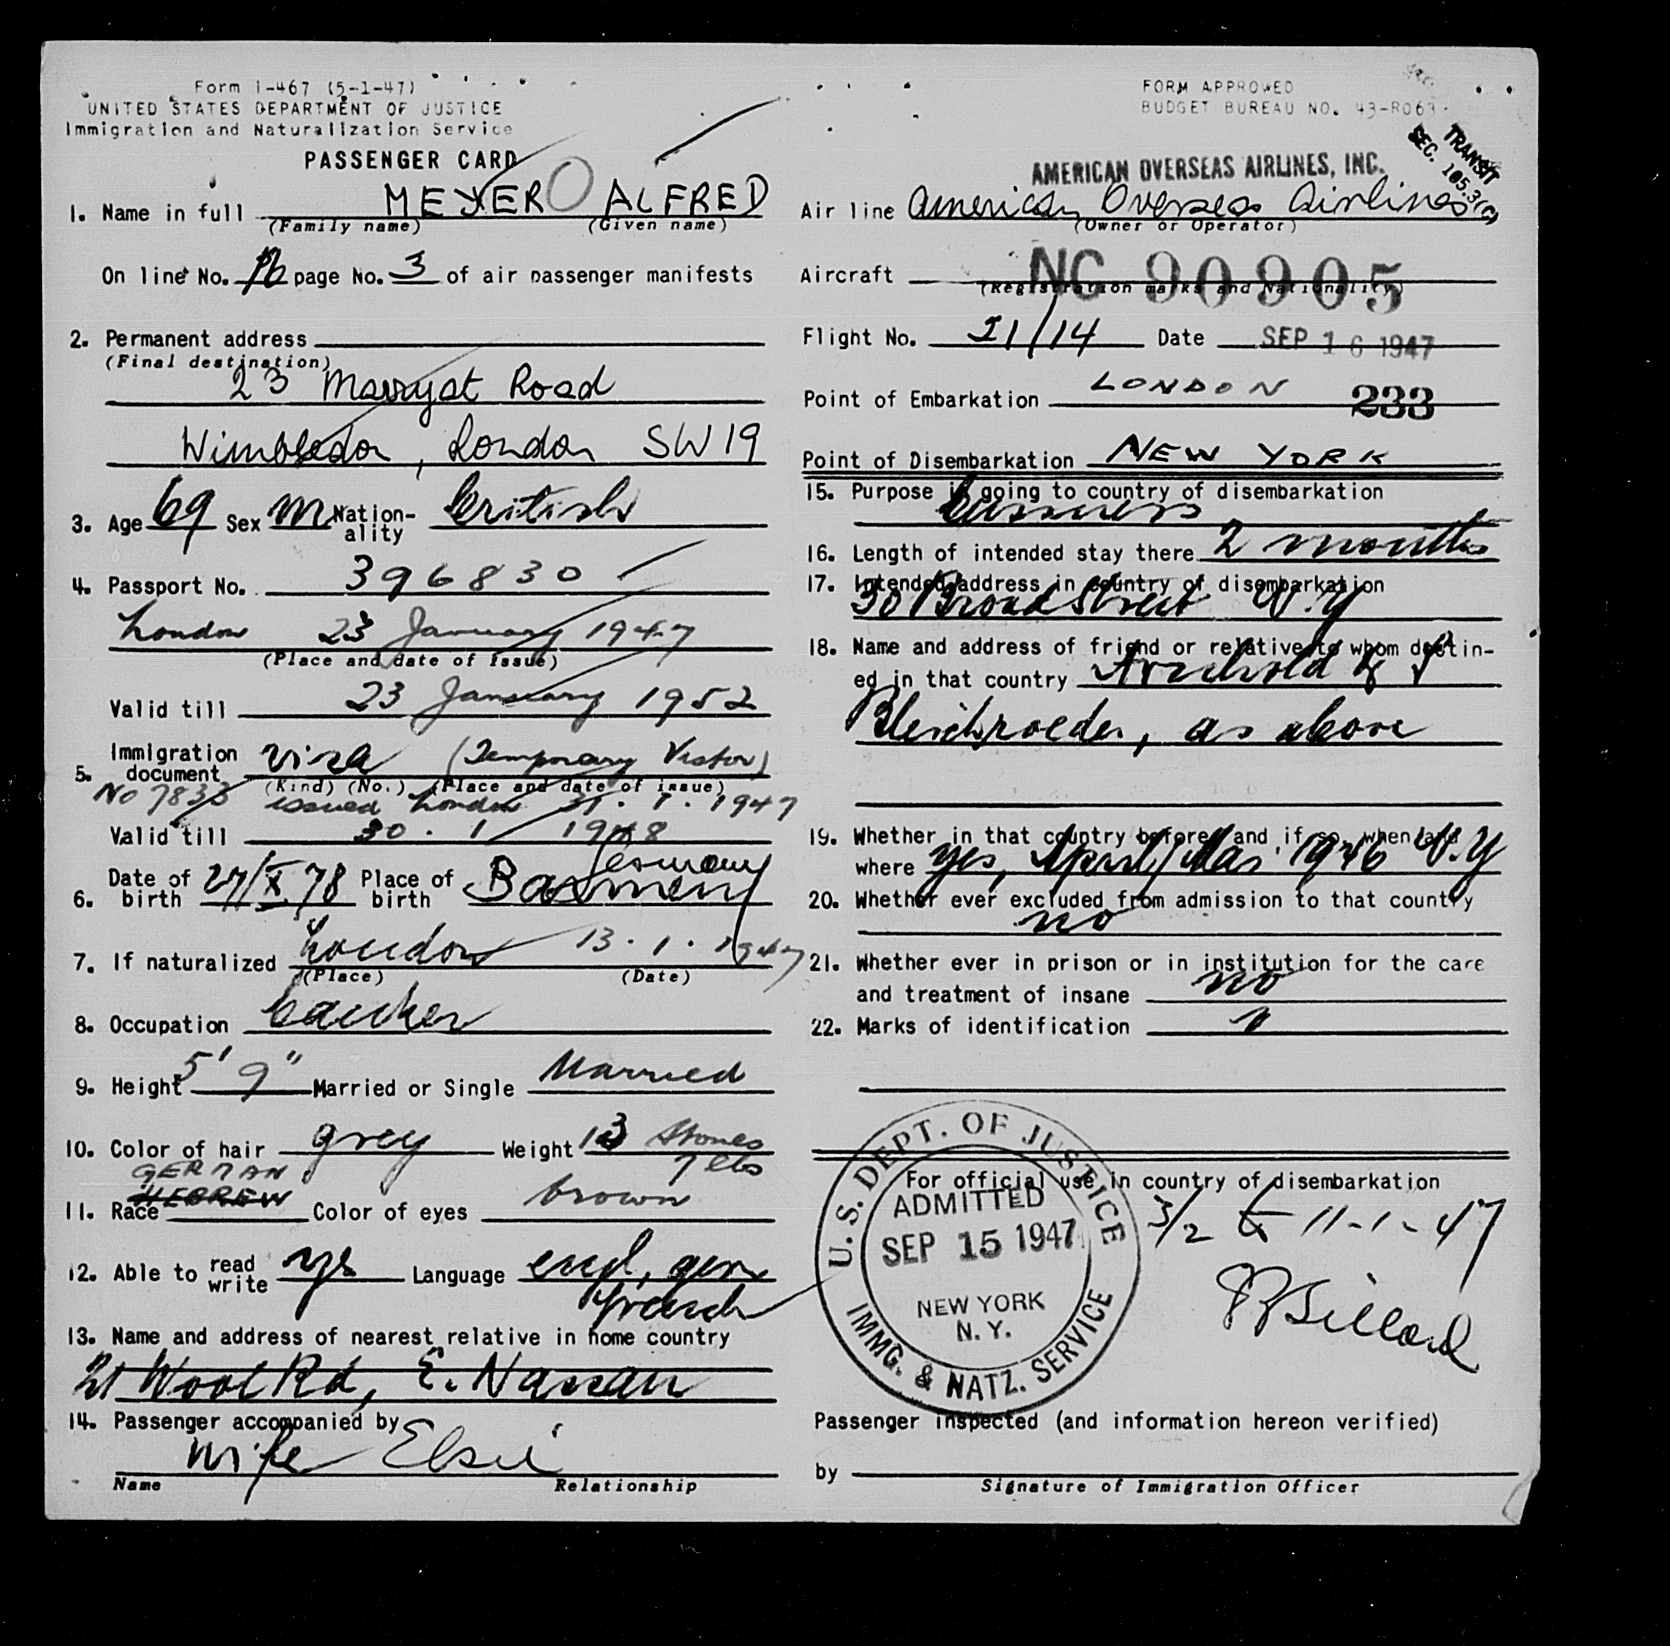 Form I-467 (5-1-47)
UNITED STATES DEPARTMENT OF JUSTICE
Immigration and Naturalization Service
PASSENGER CARD
1. Name in full MEYER ALFRED
(Family name) (Given name)
On line No. page No. 3 of air passenger manifests
2. Permanent address
(Final destination)
23 Marryat Road
Wimbledon, London SW19
3. Age 69 Sex M Nation-ality British
4. Passport No. 396830
London 23 January 1947
(Place and date of issue)
Valid till 23 January 1952
5. Immigration document visa (Temporary Visitor)
(Kind) (No.) (Place and date of issue)
No 7833 issued London 31. 1. 1947
Valid till 30. 1 1948
Germany
6. Date of birth 27/X.78 Place of birth Barmen
7. If naturalized London 13. 1. 1947
(Place) (Date)
8. Occupation banker
9. Height 5' 9" Married or Single Married
10. Color of hair grey Weight 13 stones
7 lbs
GERMAN
11. Race HEBREW Color of eyes brown
12. Able to read write yes Language engl, germ
french
13. Name and address of nearest relative in home country
Rd, E.
14. Passenger accompanied by
wife Elsie
Name Relationship
FORM APPROVED
BUDGET BUREAU NO. 43-R063.
TRANSIT
SEC. 105.3(C)
AMERICAN OVERSEAS AIRLINES, INC.
Air line American Overseas Airlines
(Owner or Operator)
Aircraft NC 90905
(Registration marks and Nationality)
Flight No. 21/14 Date SEP 16 1947
Point of Embarkation LONDON 233
Point of Disembarkation NEW YORK
15. Purpose in going to country of disembarkation
business
16. Length of intended stay there 2 months
17. Intended address in country of disembarkation
30 Broad Street N.Y
18. Name and address of friend or relative to whom destin-
ed in that country Arnhold & S
Bleichroeder, as above
19. Whether in that country before, and if so, when and
where yes, April/Mai 1946 N.Y
20. Whether ever excluded from admission to that country
no
21. Whether ever in prison or in institution for the care
and treatment of insane no
22. Marks of identification
For official use in country of disembarkation
U.S. DEPT. OF JUSTICE
ADMITTED
SEP 15 1947
NEW YORK
N. Y.
IMMG. & NATZ. SERVICE
3/2 11-1-47
Passenger inspected (and information hereon verified)
by
Signature of Immigration Officer